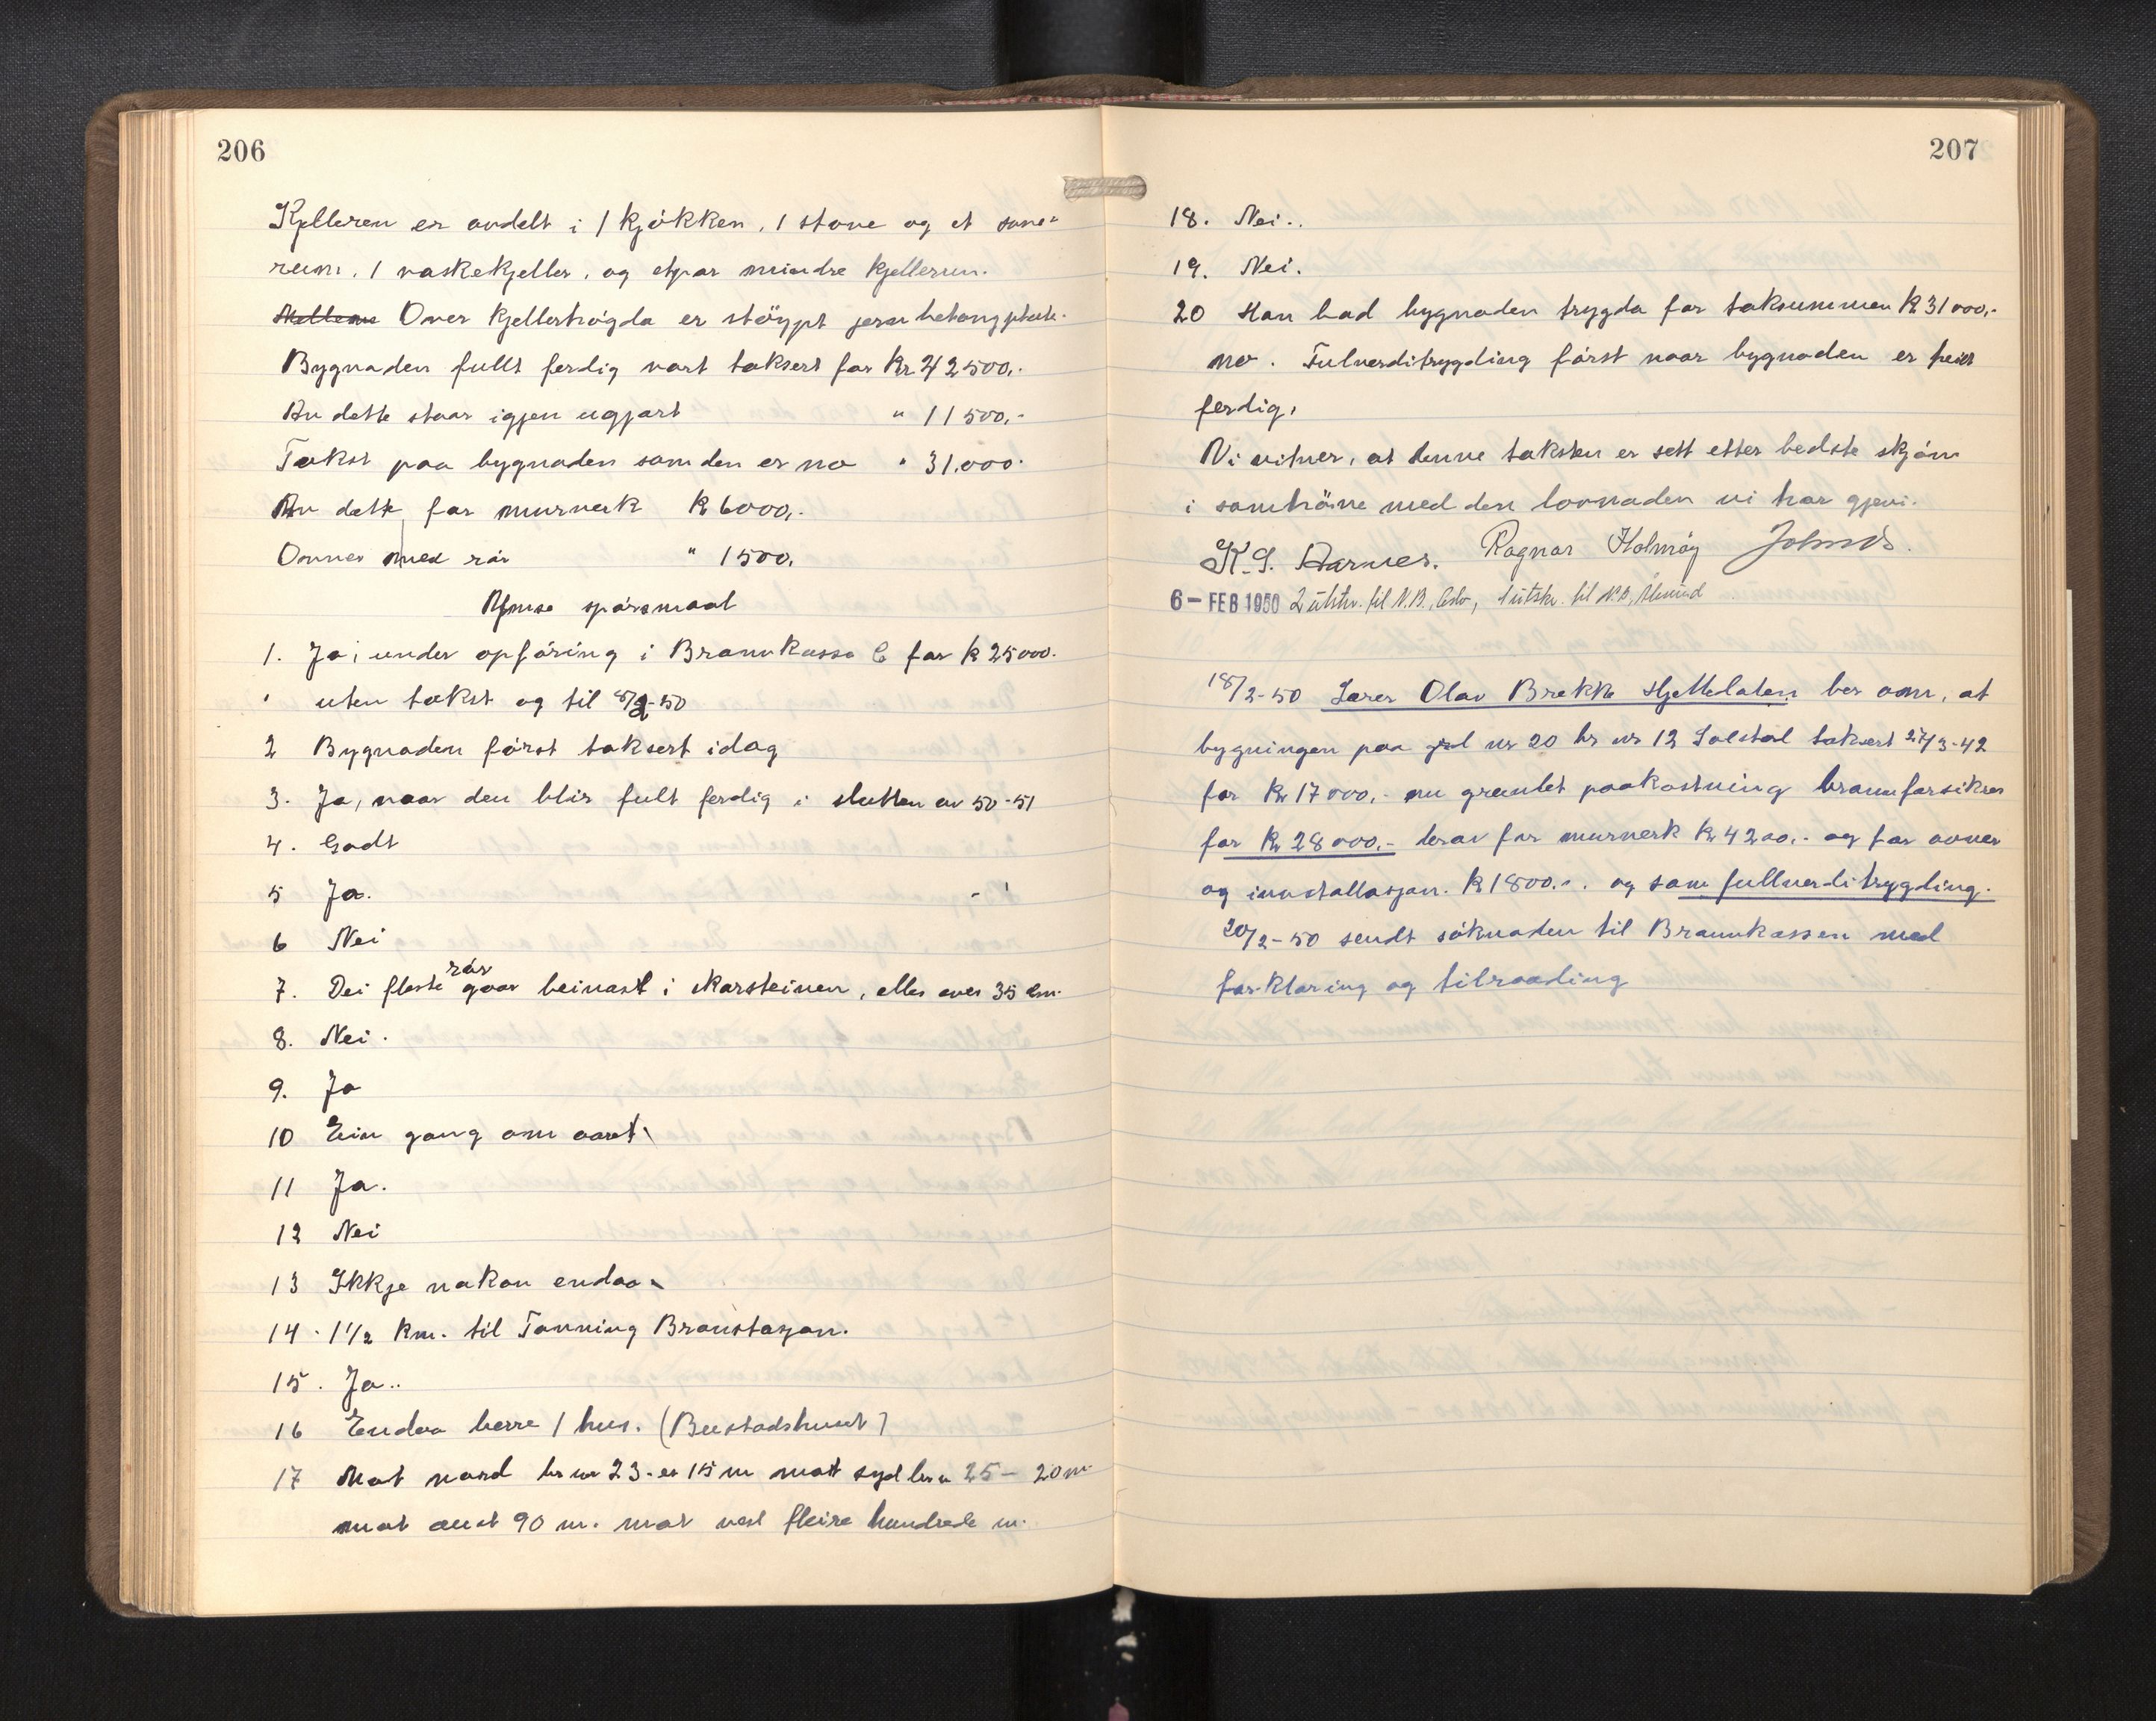 206
Kjelleren er avdelt i 1 kjøkken, 1 stove og et sove-
rum, 1 vaskekjeller, og etpar mindre kjellerum.
Over kjellerhøgda er støypt jern betongplate.
Bygnaden fullt ferdig vart taksert for Kr 42500,-
Av dette staar igjen ugjort " 11500,-
Takst paa bygnaden som den er no " 31.000-
Av dette for murverk K 6000,-
Omner med rør " 1500,
Ymse spørsmaal
1. Ja, under opføring i Brannkassa C for K 25000.
uten takst og til 8/2-50
2 Bygnaden først taksert idag
3. Ja, naar den blir fult ferdig i slutten av 50-51
4. Godt
5 Ja.
6 Nei
7. Dei fleste rør gaar beinast i skorsteinen, elles over 35 cm.
8. Nei.
9. Ja
10 Ein gang om aaret
11 Ja.
12 Nei
13 Ikkje nokon endaa
14. 1 1/2 km. til Tonning Branstasjon.
15. Ja..
16 Endaa berre 1 hus. (Bustadshuset)
17 Mot nord br nr 23 - er 15 m mot syd br nr 25 - 20 m
mot aust 90 m. mot vest fleire hundrede m.
207
18. Nei.
19. Nei.
20 Han bad bygnaden trygda for taksummen K 31000,-
no. Fulverditrygding først naar bygnaden er heilt
ferdig,
Vi vitner, at denne taksten er sett etter bedste skjøn
i samhøve med den lovnaden vi har gjevi.
K. S. Ragnar Holmøy
6- FEB 1950 2 utskr. til N.B., Oslo, 1 utskr. til N.B.,
18/2-50 Lærer Olav Brekke Hjellelaten ber om, at
bygningen paa grd nr 20 br nr 12 Solstol taksert 27/3-42
for Kr 17000,- nu grundet paakostning brannforsikres
for Kr 28000,- derav for murverk Kr 4200,- og for ovner
og innstallasjon. K 1800.-. og som fullverditrygding.
20/2-50 sendt søknaden til Brannkassen med
forklaring og tilraading